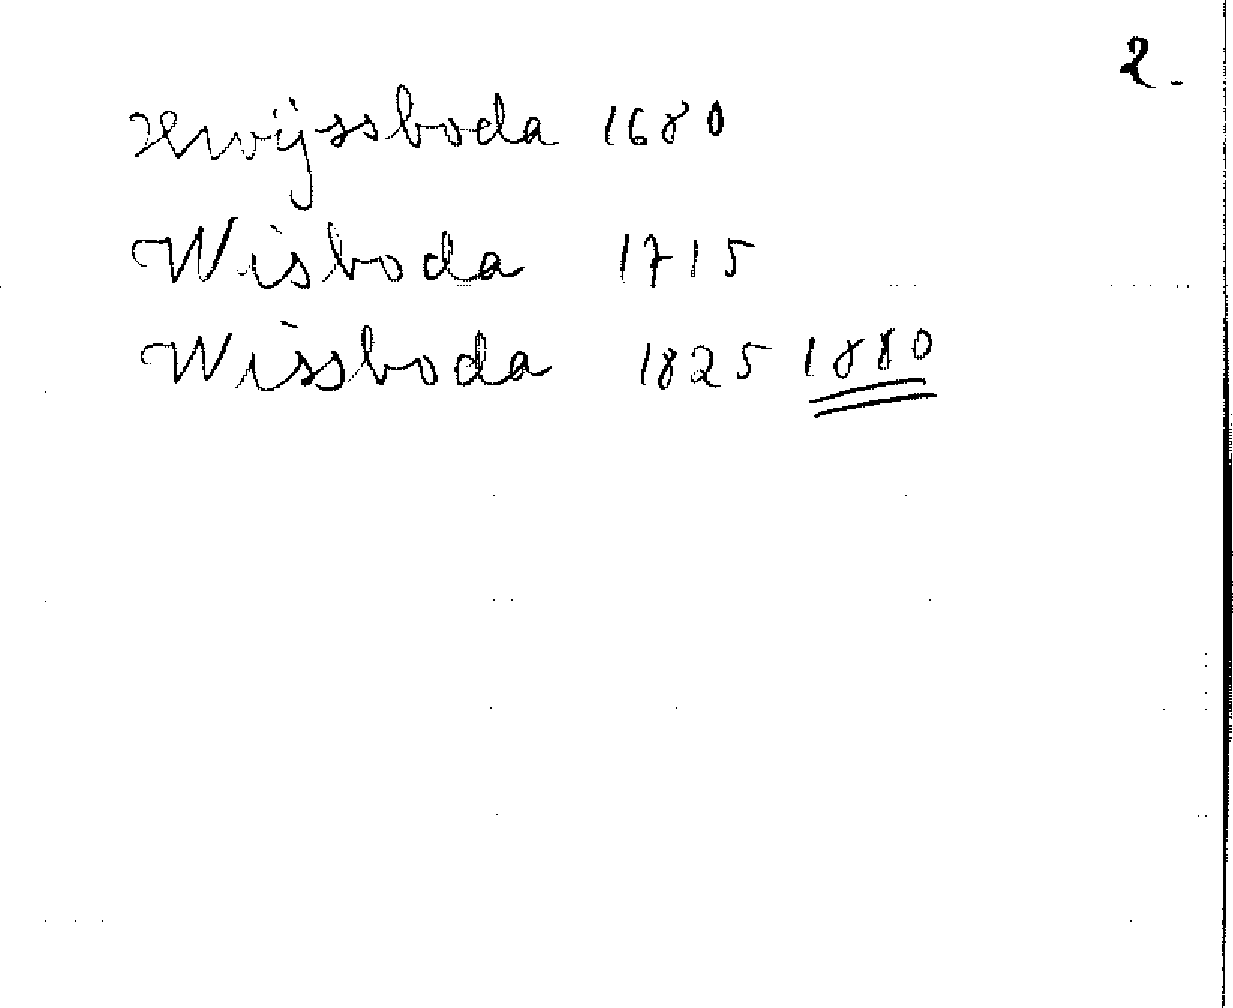 2.
Hwijssboda 1680
Wisboda 1715
Wissboda 1825 1880